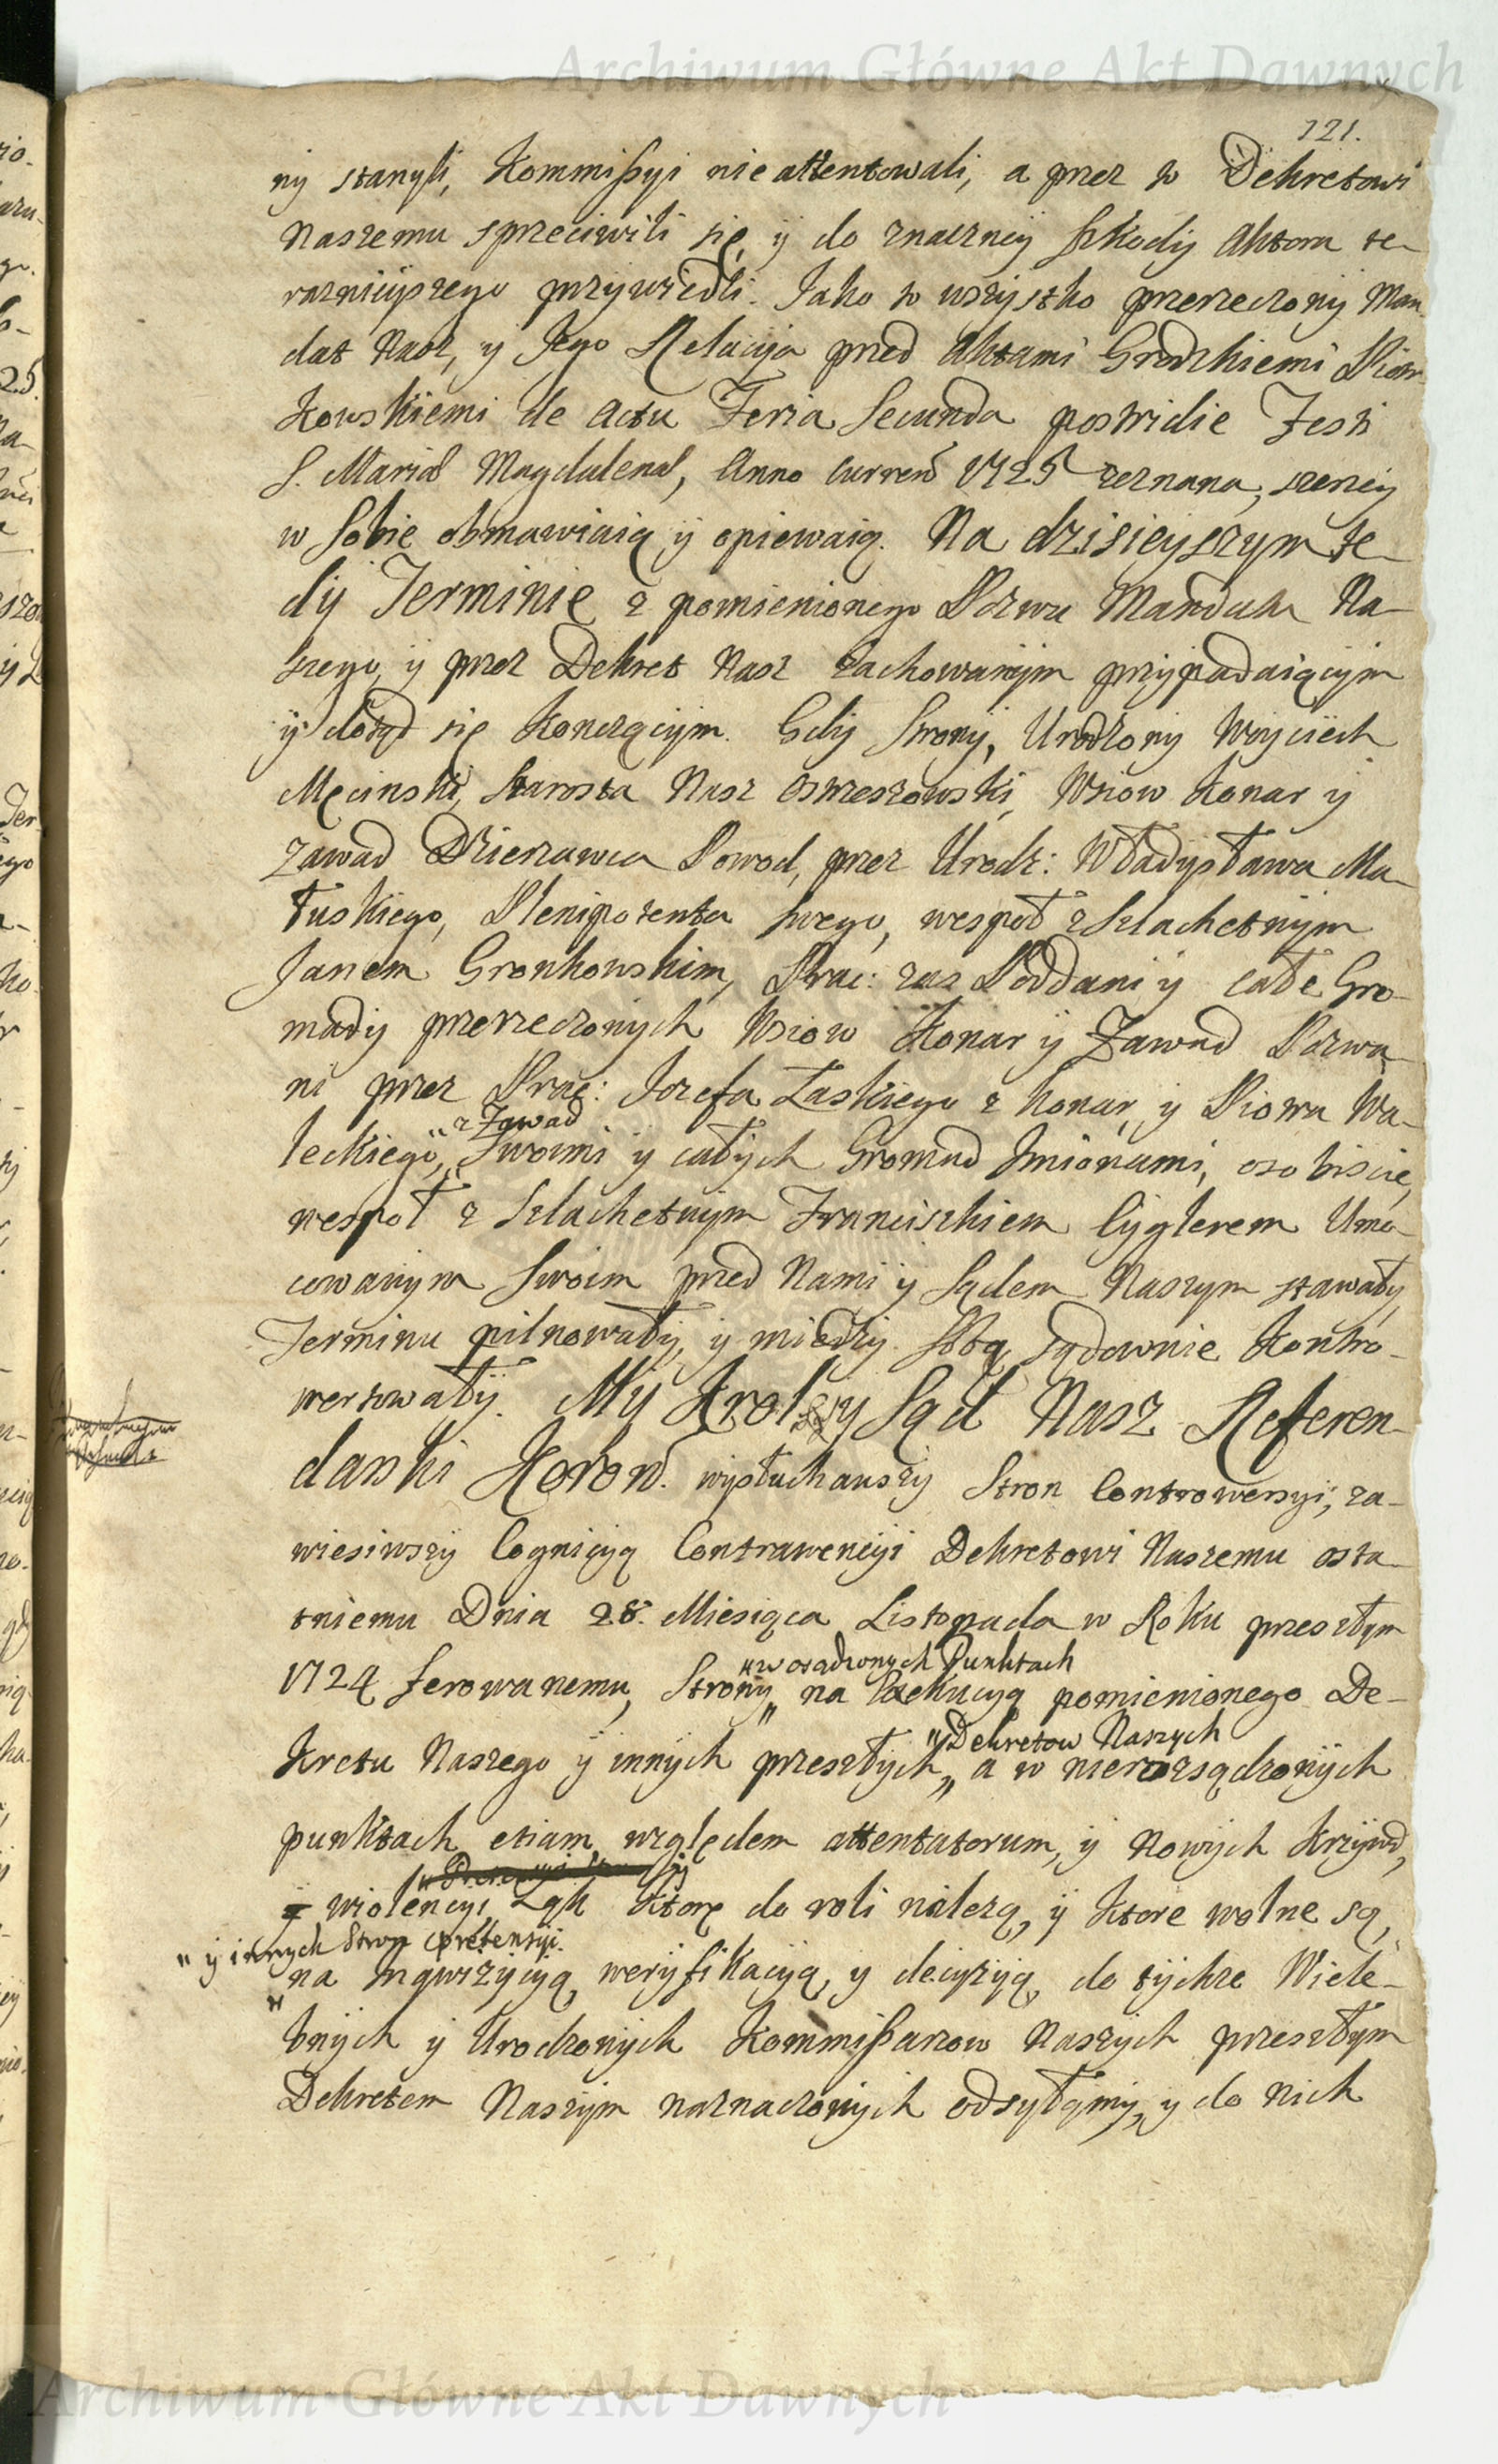 Archiwum Główne Akt Dawnych
121.
ny stanęli, Kommißyi nie attentowali, a przez to Dekretowi
Naszemu sprzeciwili się y do znaczney szkody Aktora te-
raznieyszego przywiedli. Jako to wszystko przerzeczony Man
dat Nasz, y Jego Relacyja przed Aktami Grodzkiemi Piotr
kowskiemi de Actu Feria Secunda postridie Festi
S. Mariae Magdalenae, Anno curren 1725 zeznana, szerzey
w sobie obmawiaią y opiewaią. Na dzisieyszym te-
dy Terminie z pomienionego Pozwu Mandatu Na-
szego, y przez Dekret Nasz zachowanym przypadaiącym
y dotąd się konczącym. Gdy Strony, Urodzony Woyciech
Męcinski, Starosta Nasz Ostrzeszowski, Wsiow Konar y
Zawad Dzierzawca Powod, przez Urodz: Władysława Ma-
łuskiego, Plenipotenta swego, wespoł z Szlachetnym
Janem Gronkowskim, Prac: zas Poddani y całe Gro-
mady przerzeczonych Wsiow Konar y Zawad Pozwa-
ni przez Prac: Jozefa Łaskiego z Konar, y Piotra Wa-
" z Zawad
leckiego, „ Swoimi y całych Gromad Imionami, osobiscie,
wespoł z Szlachetnym Franciszkiem Cyglerem Umo-
cowanym Swoim przed Nami y Sądem Naszym stawały,
Terminu pilnowały, y miedzy sobą sądownie kontro-
wertowały. My Krol y Sąd Nasz Referen-
darski Koron. wysłuchawszy Stron Controwersyi, za-
wiesiwszy Cognicyą Contrawencyi Dekretowi Naszemu osta-
tniemu Dnia 28. Miesiąca Listopada w Roku przeszłym
" w osądzonych Punktach
1724 ferowanemu, Strony „ na Exekucyą pomienionego De-
" Dekretow Naszych
kretu Naszego y innych przeszłych „ a w nierozsądzonych
punktach etiam względem attentatorum, y nowych krzywd,
y wiolencyi, Łąk ktore do roli należą, y ktore wolne są,
" y innych Stron pretensyi.
" na inqwizycyą, weryfikacyą, y decyzyą, do tychze Wiele-
bnych y Urodzonych Kommißarzow Naszych przeszłym
Dekretem Naszym naznaczonych odsyłamy, y do nich
Archiwum Główne Akt Dawnych